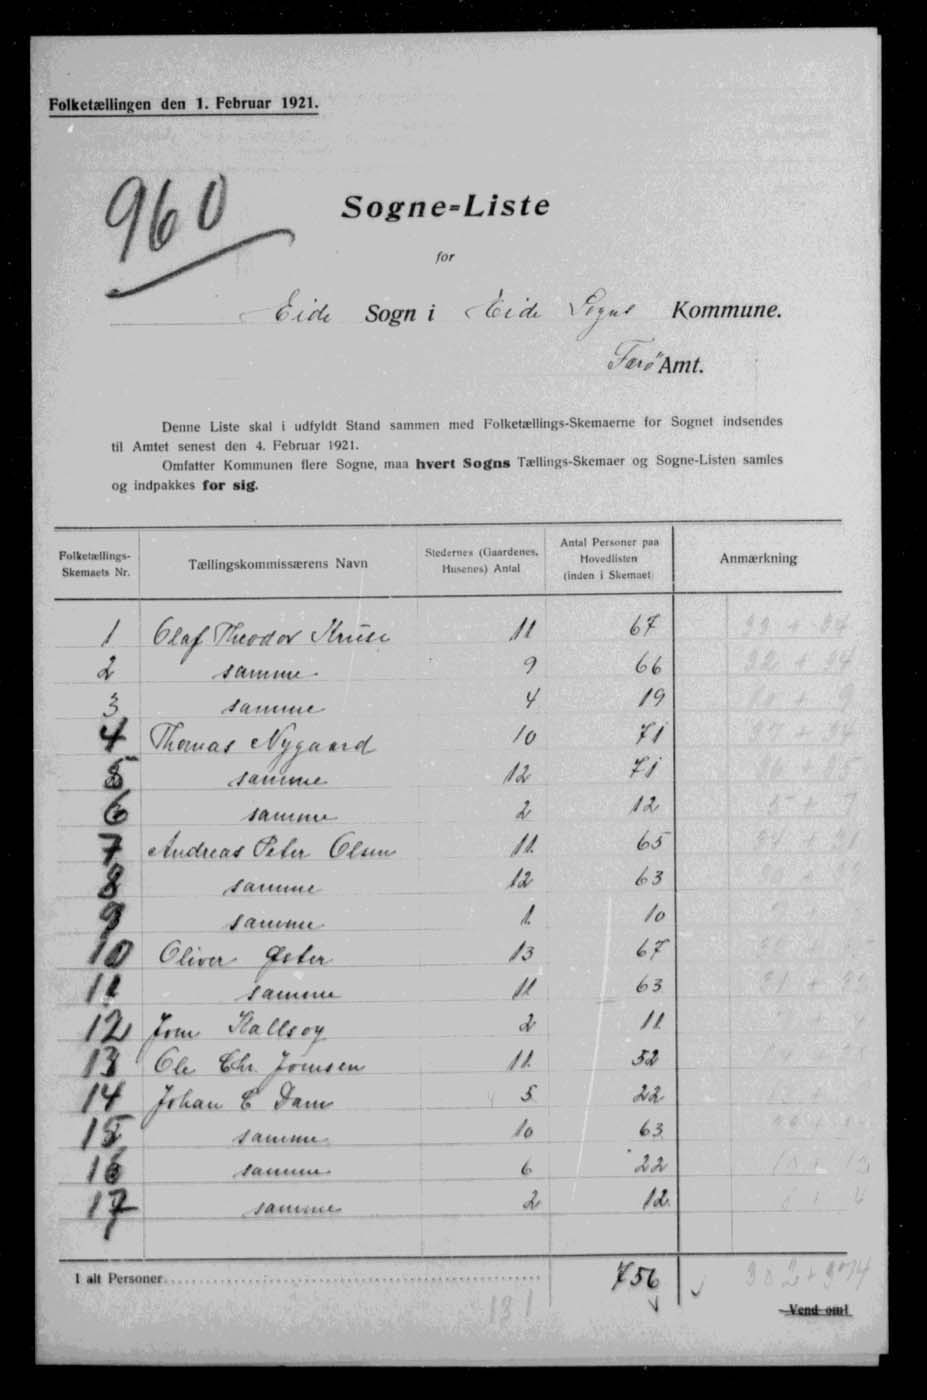 Folketællingen den 1. Februar 1921.
960
Sogne=Liste
for
Eide Sogn i Eide Sogns Kommune.
Færö Amt.
Denne Liste skal i udfyldt Stand sammen med Folketællings-Skemaerne for Sognet indsendes
til Amtet senest den 4. Februar 1921.
Omfatter Kommunen flere Sogne, maa hvert Sogns Tællings-Skemaer og Sogne-Listen samles
og indpakkes for sig.
Folketællings-Skemaets Nr. Tællingskommissærens Navn Stedernes (Gaardenes, Husenes) Antal Antal Personer paa Hovedlisten (inden i Skemaet) Anmærkning
1 Olaf Theodor Kruse 11 67
2 samme 9 66 32 + 34
3 samme 4 19 10 + 9
4 Thomas Nygaard 10 71 37 + 34
5 samme 12 71 36 + 35
6 samme 2 12 5 + 7
7 Andreas Peter Olsen 11 65 34 + 31
8 samme 12 63
9 samme 1 10
10 Oliver Øster 13 67
11 samme 11 63 31 + 32
12 Joen Kallsoy 2 11
13 Ole Chr. Joensen 11 52
14 Johan C Dam 5 22
15 samme 10 63
16 samme 6 22 10 + 12
17 samme 2 12 8 + 4
I alt Personer 756
131
Vend om!